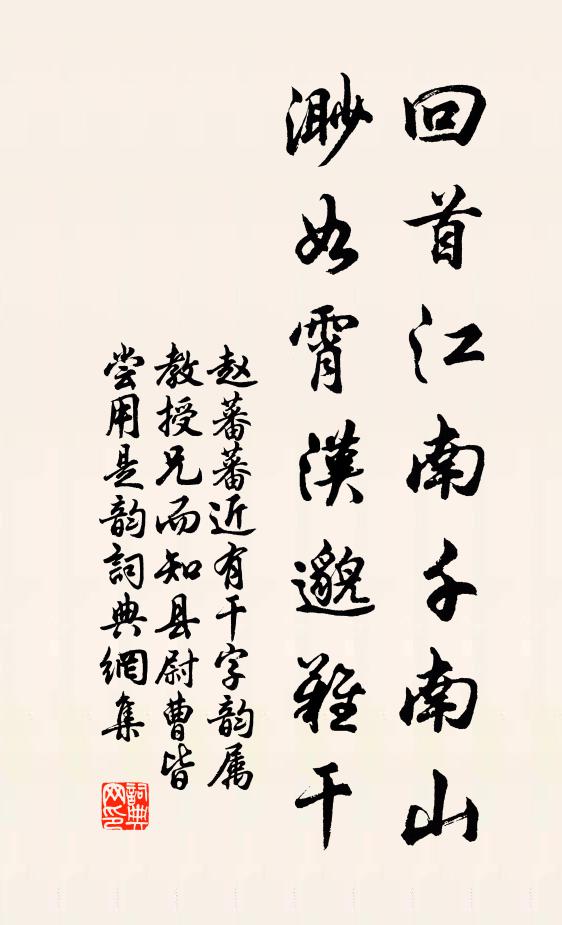 回首江南千南山
渺如霄漢邈難干
赵蕃蕃近有干字韵属
教授兄而知县尉曹皆
尝用是韵詞典網集
詞典网印